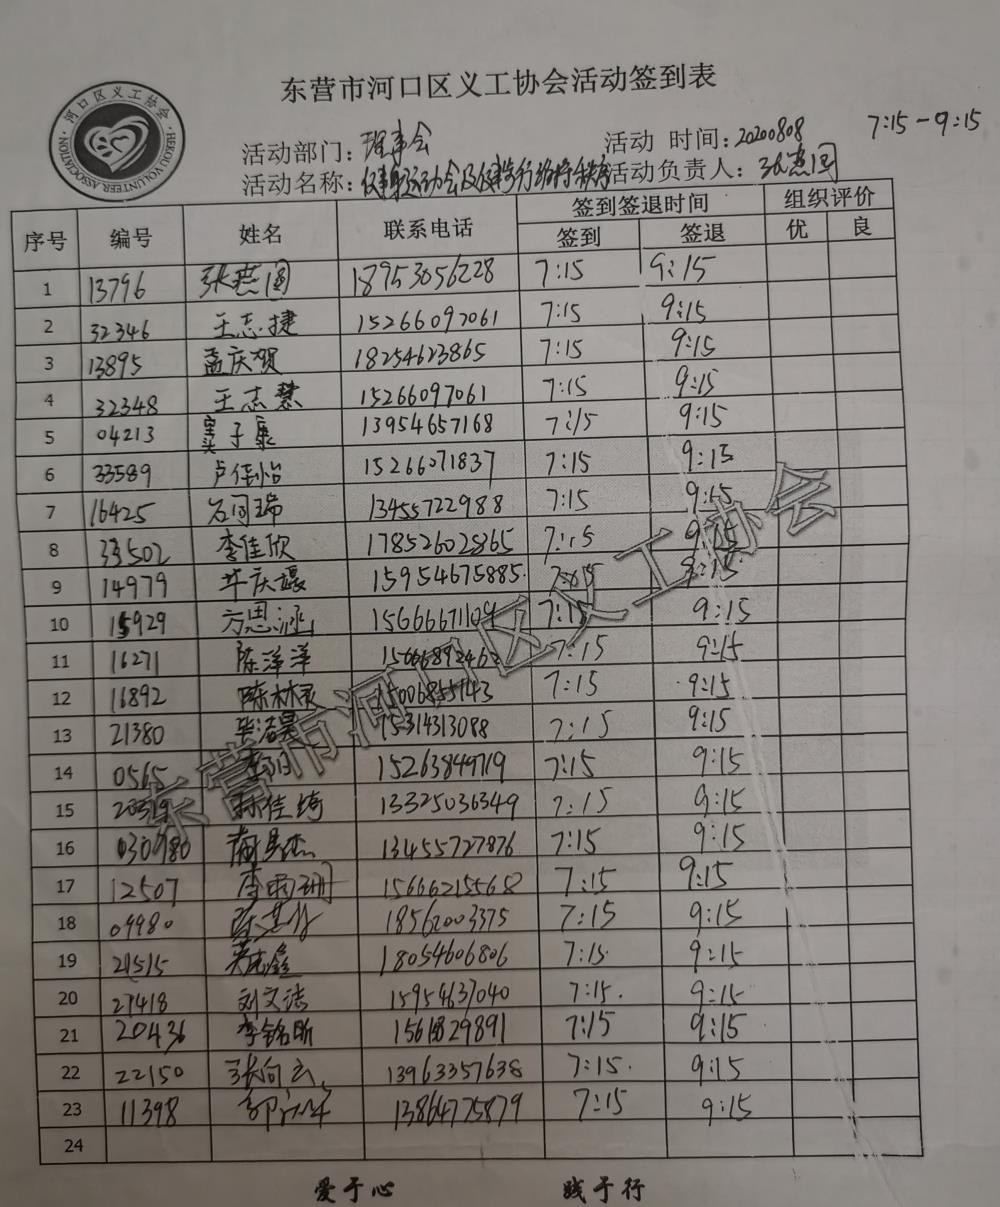 东营市河口区义工协会活动签到表
河口区义工协会
HEKOU VOLUNTEER ASSOCIATION
7:15-9:15
活动部门：理事会 活动 时间：20200808
活动名称：健身运动会及健步行维持秩序 活动负责人：张燕国
序号 编号 姓名 联系电话 签到签退时间 组织评价
签到 签退 优 良
1 13796 张燕国 18953056228 7:15 9:15
2 32346 王志捷 15266097061 7:15 9:15
3 13895 孟庆贺 18254623865 7:15 9:15
4 32348 王志慧 15266097061 7:15 9:15
5 04213 子康 13954657168 7:15 9:15
6 33589 卢佳怡 15266071837 7:15 9:15
7 16425 13455722988 7:15 9:15
8 33502 李佳欣 17852602865 7:15 9:15
9 14979 15954675885 7:15 9:15
10 15929 方思涵 15666671109 7:15 9:15
11 16271 陈洋洋 7:15 9:15
12 16892 陈林灵 15006855143 7:15 9:15
13 21380 15314313088 7:15 9:15
14 0565 15263849719 7:15 9:15
15 20319 孙佳琦 13325036349 7:15 9:15
16 030980 13455727876 7:15 9:15
17 12507 李雨珊 15666215568 7:15 9:15
18 09980 18562003375 7:15 9:15
19 21515 18054606806 7:15 9:15
20 27418 刘文洁 15954637040 7:15 9:15
21 20436 李铭昕 7:15 9:15
22 22150 张向云 13963357638 7:15 9:15
23 11398 13864725879 7:15 9:15
24
东营市河口区义工协会
爱于心 践于行